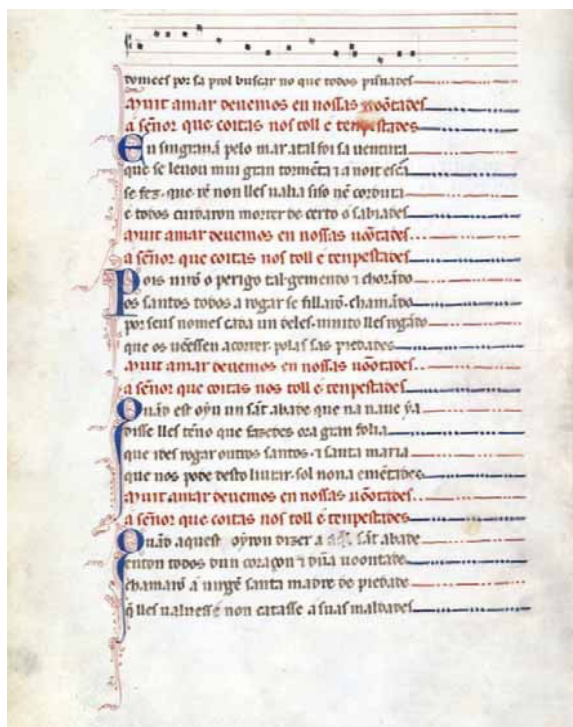 tomees por sa prol buscar no que todos punnades
Muit amar deuemos en nossas uoōtades
a señor que coitas nos toll e tenpestades
En sin grāna pelo mar atal foi sa uentura
que se leuou mui gran tormēta ⁊ a noit escā
se fez · que rē non lles ualia siso nē cordura
e todos cuidaron morrer de certo o sabiades
Muit amar deuemos en nossas uoōtades
a señor que coitas nos toll e tenpestades
Pois uirō o perigo tal gemendo ⁊ chorādo
os santos todos a rogar se fillarō · chamādo
por seus nomes cada un deles · muito lles rogādo
que os ueēssen acorrer · polas sas piedades
Muit amar deuemos en nossas uoōtades
a señor que coitas nos toll e tenpestades
Quādo est oyu un sāt abade que na naue ya
disse lles tēno que fazedes ora gran folia
que ides rogar outros santos · ⁊ santa maria
que nos pode desto liurar · sol nona emētades
Muit amar deuemos en nossas uoōtades
a señor que coitas nos toll e tenpestades
Quādo aquest oyron dizer a sāt abade
enton todos dun coraçon ⁊ dūa uoontade
chamarō a uirgē santa madre de piedade
q̄ lles ualuesse e non catasse a suas maldades